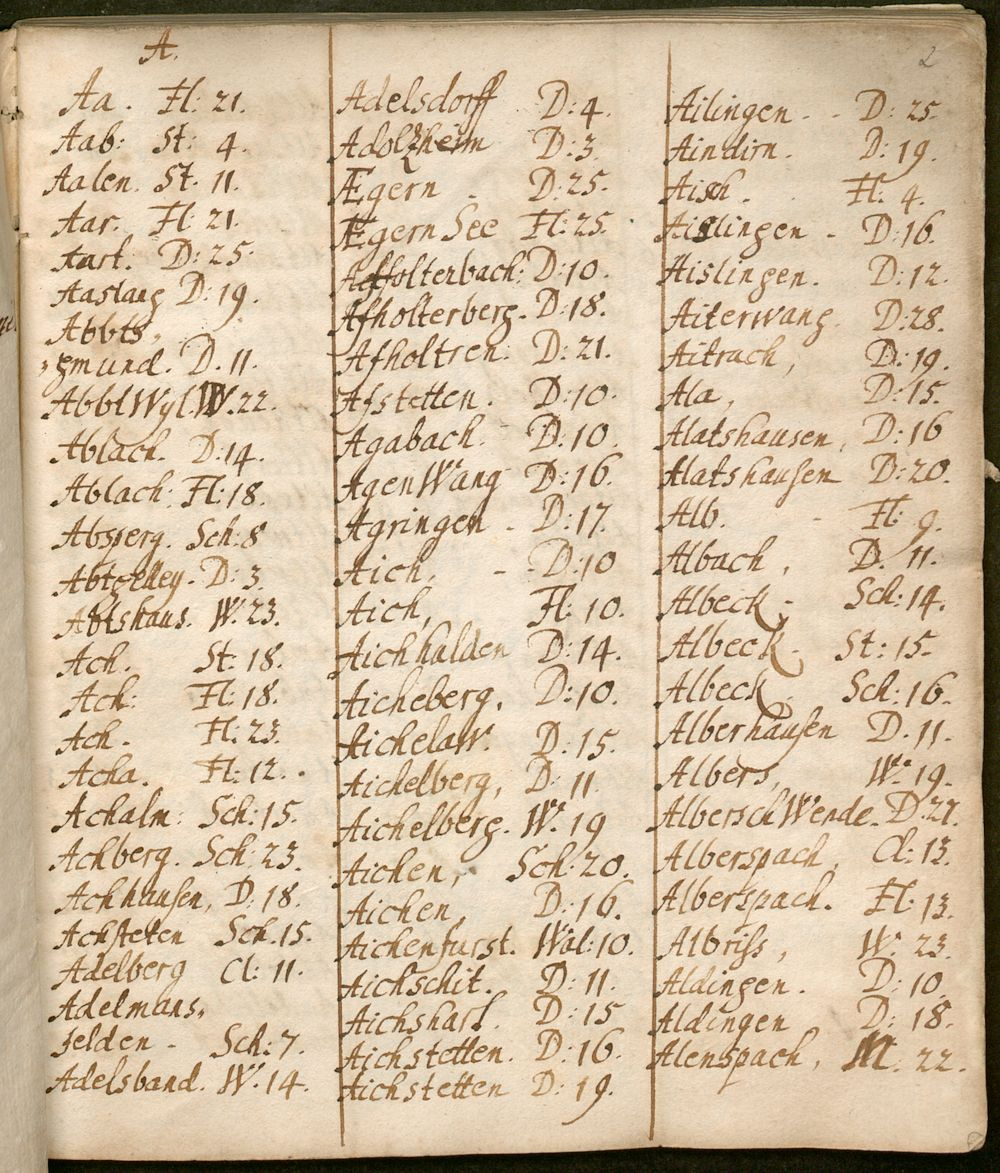 2
A.
Aa. Fl: 21.
Aab: St: 4.
Aalen. St. 11.
Aar. Fl: 21.
Aart. D: 25.
Aaslang D: 19.
Abbts,
gmund. D. 11.
AbblWyl. W. 22.
Ablach. D: 14.
Ablach: Fl: 18.
Absperg. Sch: 8
Abtzelley. D: 3
Abtshaus. W. 23.
Ach. St: 18.
Ach: Fl: 18.
Ach. Fl: 23.
Acha. Fl: 12.
Achalm: Sch: 15.
Achberg. Sch: 23.
Achhausen, D: 18.
Achsteten Sch. 15.
Adelberg Cl: 11.
Adelmans,
felden - Sch: 7.
Adelsband. W. 14.
Adelsdorff D: 4.
Adolzheim D: 3.
Ægern - D: 25.
Ægern See Fl: 25.
Affolterbach: D: 10.
Afholterberg. D: 18.
Afholtren: D: 21.
Afstetten. D: 10.
Agabach. D: 10.
AgenWang D: 16.
Agringen - D: 17.
Aich, - D: 10
Aich, Fl: 10.
Aichhalden D: 14.
Aicheberg, D: 10.
Aichelaw. D: 15.
Aichelberg, D: 11
Aichelberg. W. 19
Aichen, Sch: 20.
Aichen, D: 16.
Aichenfurst. Wal: 10.
Aichschit. D: 11.
Aichshart. D: 15
Aichstetten. D: 16.
Aichstetten D: 19.
Ailingen - - D: 25
Aindirn. D: 19.
Aisch. Fl. 4.
Aislingen - D: 16.
Aislingen. D: 12.
Aiterwang. D: 28.
Aitrach, D: 19.
Ala, D: 15.
Alatshausen, D: 16
Alatshausen D: 20.
Alb. - Fl: 9.
Albach, D. 11.
Albeck - Sch: 14.
Albeck. St: 15.
Albeck. Sch: 16.
Alberhausen D. 11.
Albers, W. 19.
AlberschWende. D: 27.
Alberspach, Cl: 13.
Alberspach. Fl. 13.
Albriss, W. 23.
Aldingen. D: 10
Aldingen D: 18.
Alenspach, M. 22.